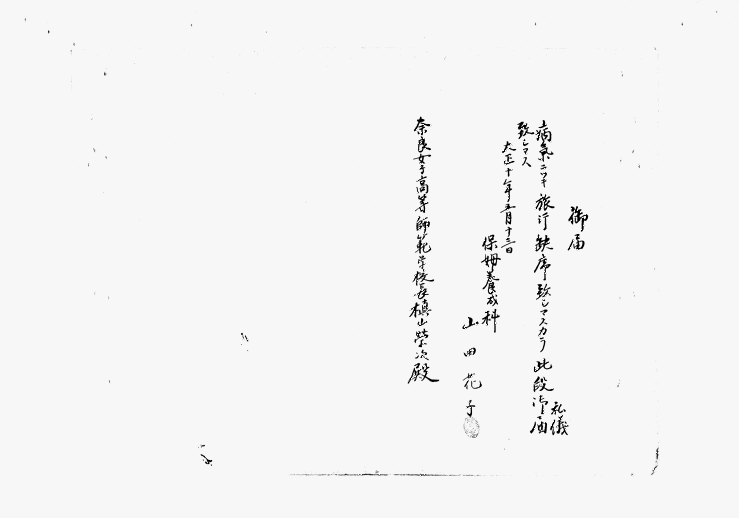 御届
私儀
病氣ニツキ旅行缺席致シマスカラ此段御届
致シマス
大正十年五月十三日
保姆養成科
山田花子
奈良女子高等師範学校長槙山榮次殿